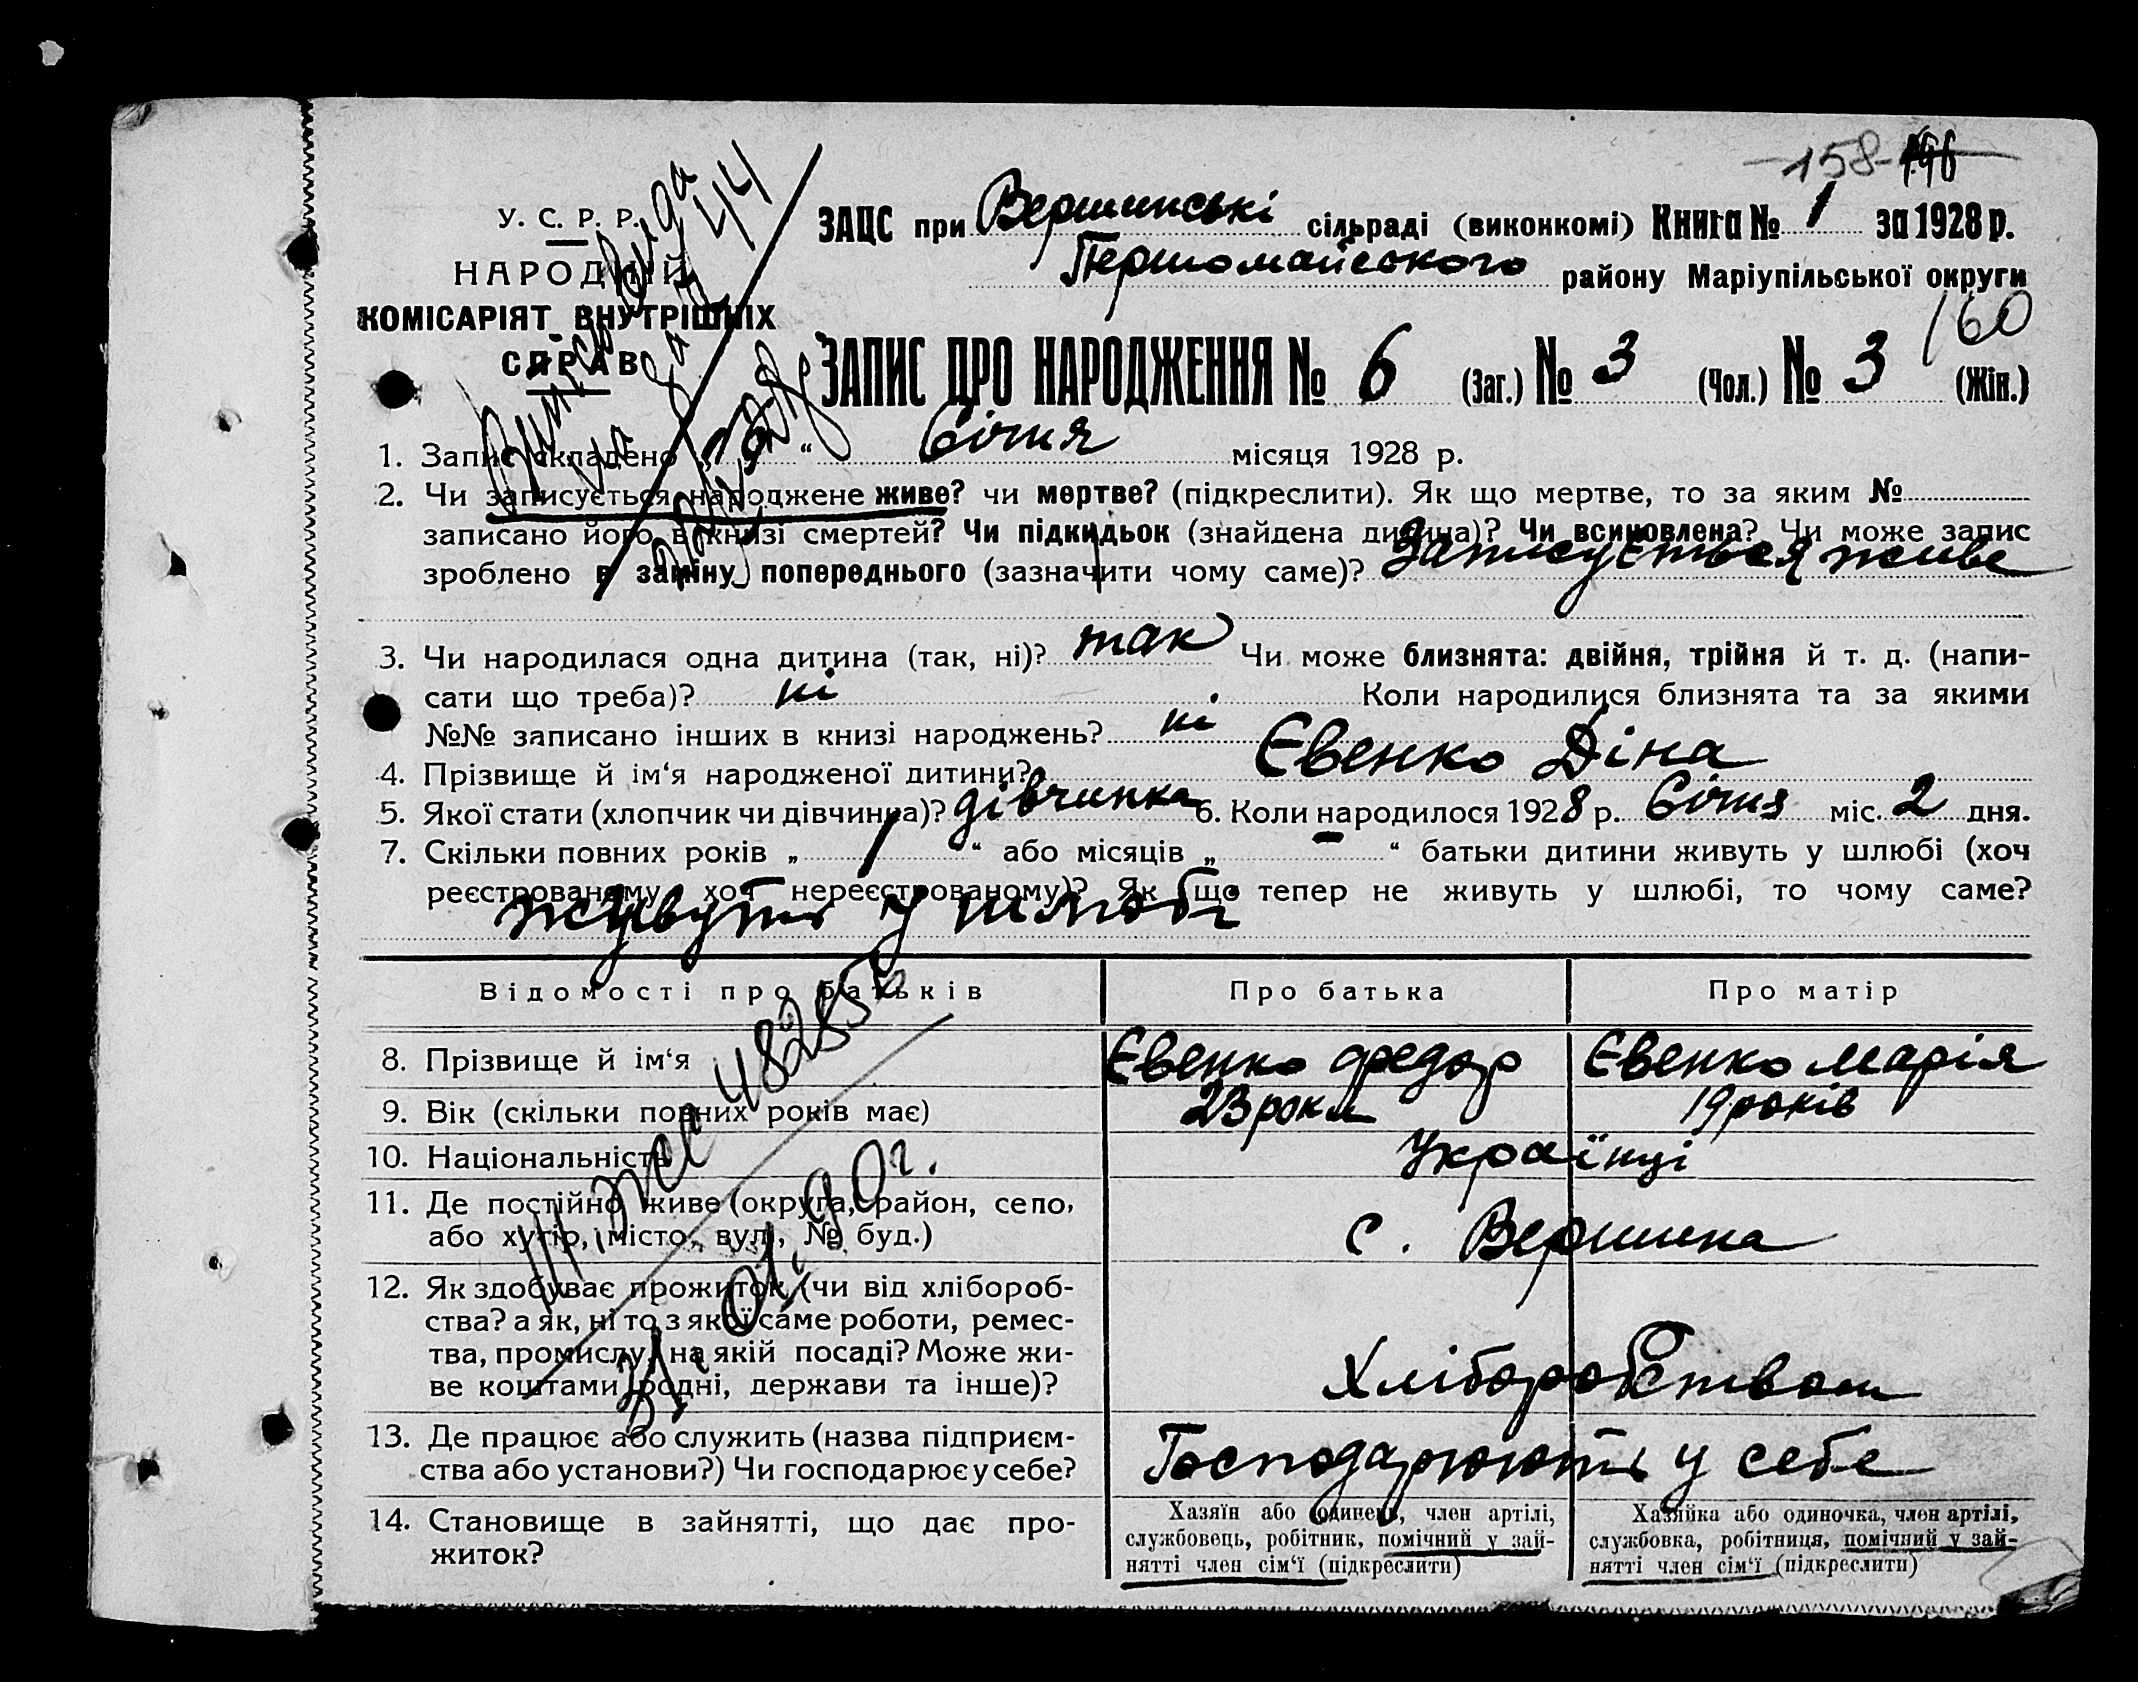 -158- 196
У. С. Р. Р.
НАРОДНІЙ
КОМІСАРІЯТ ВНУТРІШНІХ
СПРАВ
ЗАЦС при Вершинські сільраді (виконкомі) Книга № 1 за 1928 р.
Першомайського району Маріупільської округи
160
ЗАПИС ПРО НАРОДЖЕННЯ № 6 (Заг.) № 3 (Чол.) № 3 (Жін.)
1. Запис складено „ “ Січня місяця 1928 р.
2. Чи записується народжене живе? чи мертве? (підкреслити). Як що мертве, то за яким №
записано його в книзі смертей? Чи підкидьок (знайдена дитина)? Чи всиновлена? Чи може запис
зроблено в заміну попереднього (зазначити чому саме)? Записується живе
3. Чи народилася одна дитина (так, ні)? так Чи може близнята: двійня, трійня й т. д. (напи-
сати що треба)? ні Коли народилися близнята та за якими
№№ записано інших в книзі народжень? ні
4. Прізвище й ім‘я народженої дитини? Євенко Діна
5. Якої стати (хлопчик чи дівчинка)? дівчинка 6. Коли народилося 1928 р. Січня міс. 2 дня.
7. Скільки повних років „ 1 “ або місяців „ - “ батьки дитини живуть у шлюбі (хоч
реєстрованому хоч нереєстрованому)? Як що тепер не живуть у шлюбі, то чому саме?
живуть у шлюбі
Відомості про батьків Про батька Про матір
8. Прізвище й ім‘я Євенко Федор Євенко Марія
9. Вік (скільки повних років має) 23 роки 19 років
10. Національність Українці
11. Де постійно живе (округа, район, село,
або хутір, місто, вул., № буд.) с. Вершина
12. Як здобуває прожиток (чи від хлібороб-
ства? а як, ні то з якої саме роботи, ремес-
тва, промислу, на якій посаді? Може жи-
ве коштами родні, держави та інше)? Хліборобством
13. Де працює або служить (назва підприєм-
ства або установи?) Чи господарює у себе? Господарюють у себе
14. Становище в зайнятті, що дає про-
житок?
Хазяїн або одинець, член артілі,
службовець, робітник, помічний у зай-
нятті член сім‘ї (підкреслити)
Хазяйка або одиночка, член артілі,
службовка, робітниця, помічний у зай-
нятті член сім‘ї (підкреслити)
482856
31. 01. 90 г.